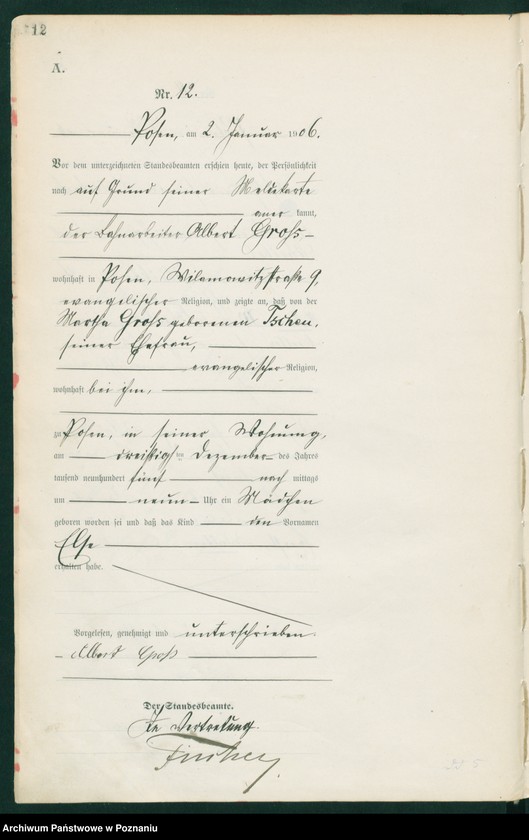 12
A.
Nr. 12.
Posen, am 2. Januar 1906.
Vor dem unterzeichneten Standesbeamten erschien heute, der Persönlichkeit
nach auf Grund seiner Meldekarte
aner kannt,
der Bahnarbeiter Albert Groß
wohnhaft in Posen, Wilamowitzstraße 9,
evangelischer Religion, und zeigte an, daß von der
Martha Groß geborenen Tschen,
seiner Ehefrau,
evangelischer Religion,
wohnhaft bei ihm,
zu Posen, in seiner Wohnung,
am dreißigsten Dezember des Jahres
tausend neunhundert fünf nach mittags
um neun Uhr ein Mädchen
geboren worden sei und daß das Kind den Vornamen
Else
erhalten habe.
Vorgelesen, genehmigt und unterschrieben.
Albert Groß
Der Standesbeamte.
In Vertretung
Archiwum Państwowe w Poznaniu